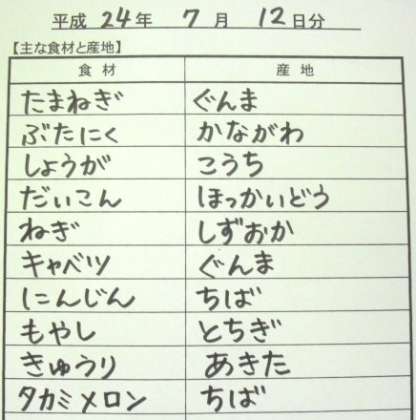 平成 24年 7月 12日分
【主な食材と産地】
食材 産地
たまねぎ ぐんま
ぶたにく かながわ
しょうが こうち
だいこん ほっかいどう
ねぎ しずおか
キャベツ ぐんま
にんじん ちば
もやし とちぎ
きゅうり あきた
タカミメロン ちば